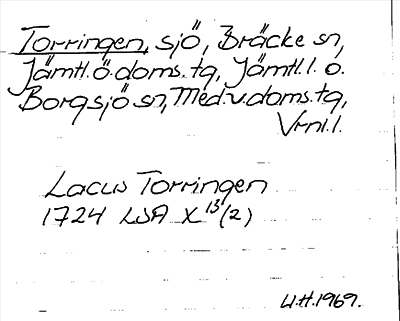 Torringen, sjö, Bräcke sn,
Jämtl.ö.doms.tg, Jämtl.l. o.
Borgsjö sn, Med.v.doms.tg,
Vrnl.l.
Lacus Torringen
1724 LSA X 13/(2)
U.H.1969.